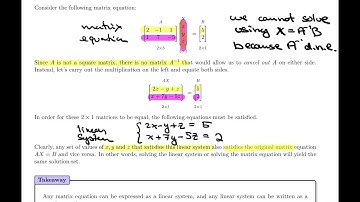 Consider the following matrix equation:
matrix equation
A X B
2 -1 1 x = 5
1 7 -5 y 2
z
2×3 3×1 2×1
we cannot solve
using X = A⁻¹B
because A⁻¹ d.n.e.
Since A is not a square matrix, there is no matrix A⁻¹ that would allow us to cancel out A on either side.
Instead, let's carry out the multiplication on the left and equate both sides.
AX B
2x − y + z = 5
x + 7y − 5z 2
2×1 2×1
In order for these 2 × 1 matrices to be equal, the following equations must be satisfied.
linear system
{ 2x-y+z = 5
x+7y-5z = 2
Clearly, any set of values of x, y and z that satisfies this linear system also satisfies the original matrix equation
AX = B and vice versa. In other words, solving the linear system or solving the matrix equation will yield the
same solution set.
Takeaway
Any matrix equation can be expressed as a linear system, and any linear system can be written as a